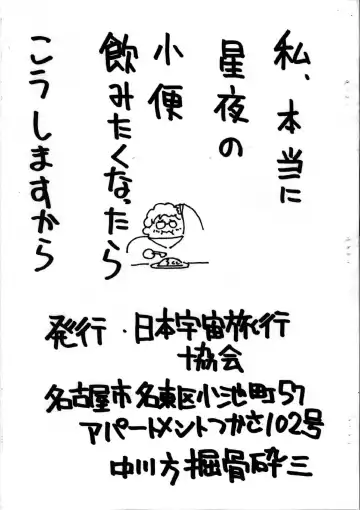 私、本当に
星夜の
小便
飲みたくなったら
こうしますから
発行．日本宇宙旅行
協会
名古屋市名東区小池町57
アパートメントつかさ102号
中川方掘骨砕三